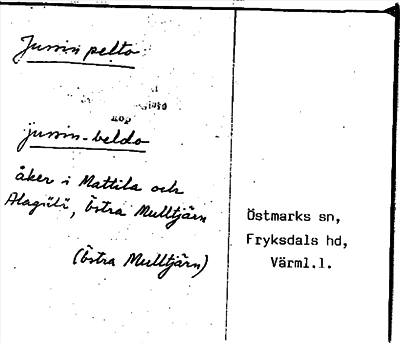 Jussin pelto
jussin-beldo
åker i Mattila och
Alagüli, Östra Mulltjärn
(Östra Mulltjärn)
Östmarks sn,
Fryksdals hd,
Värml.l.